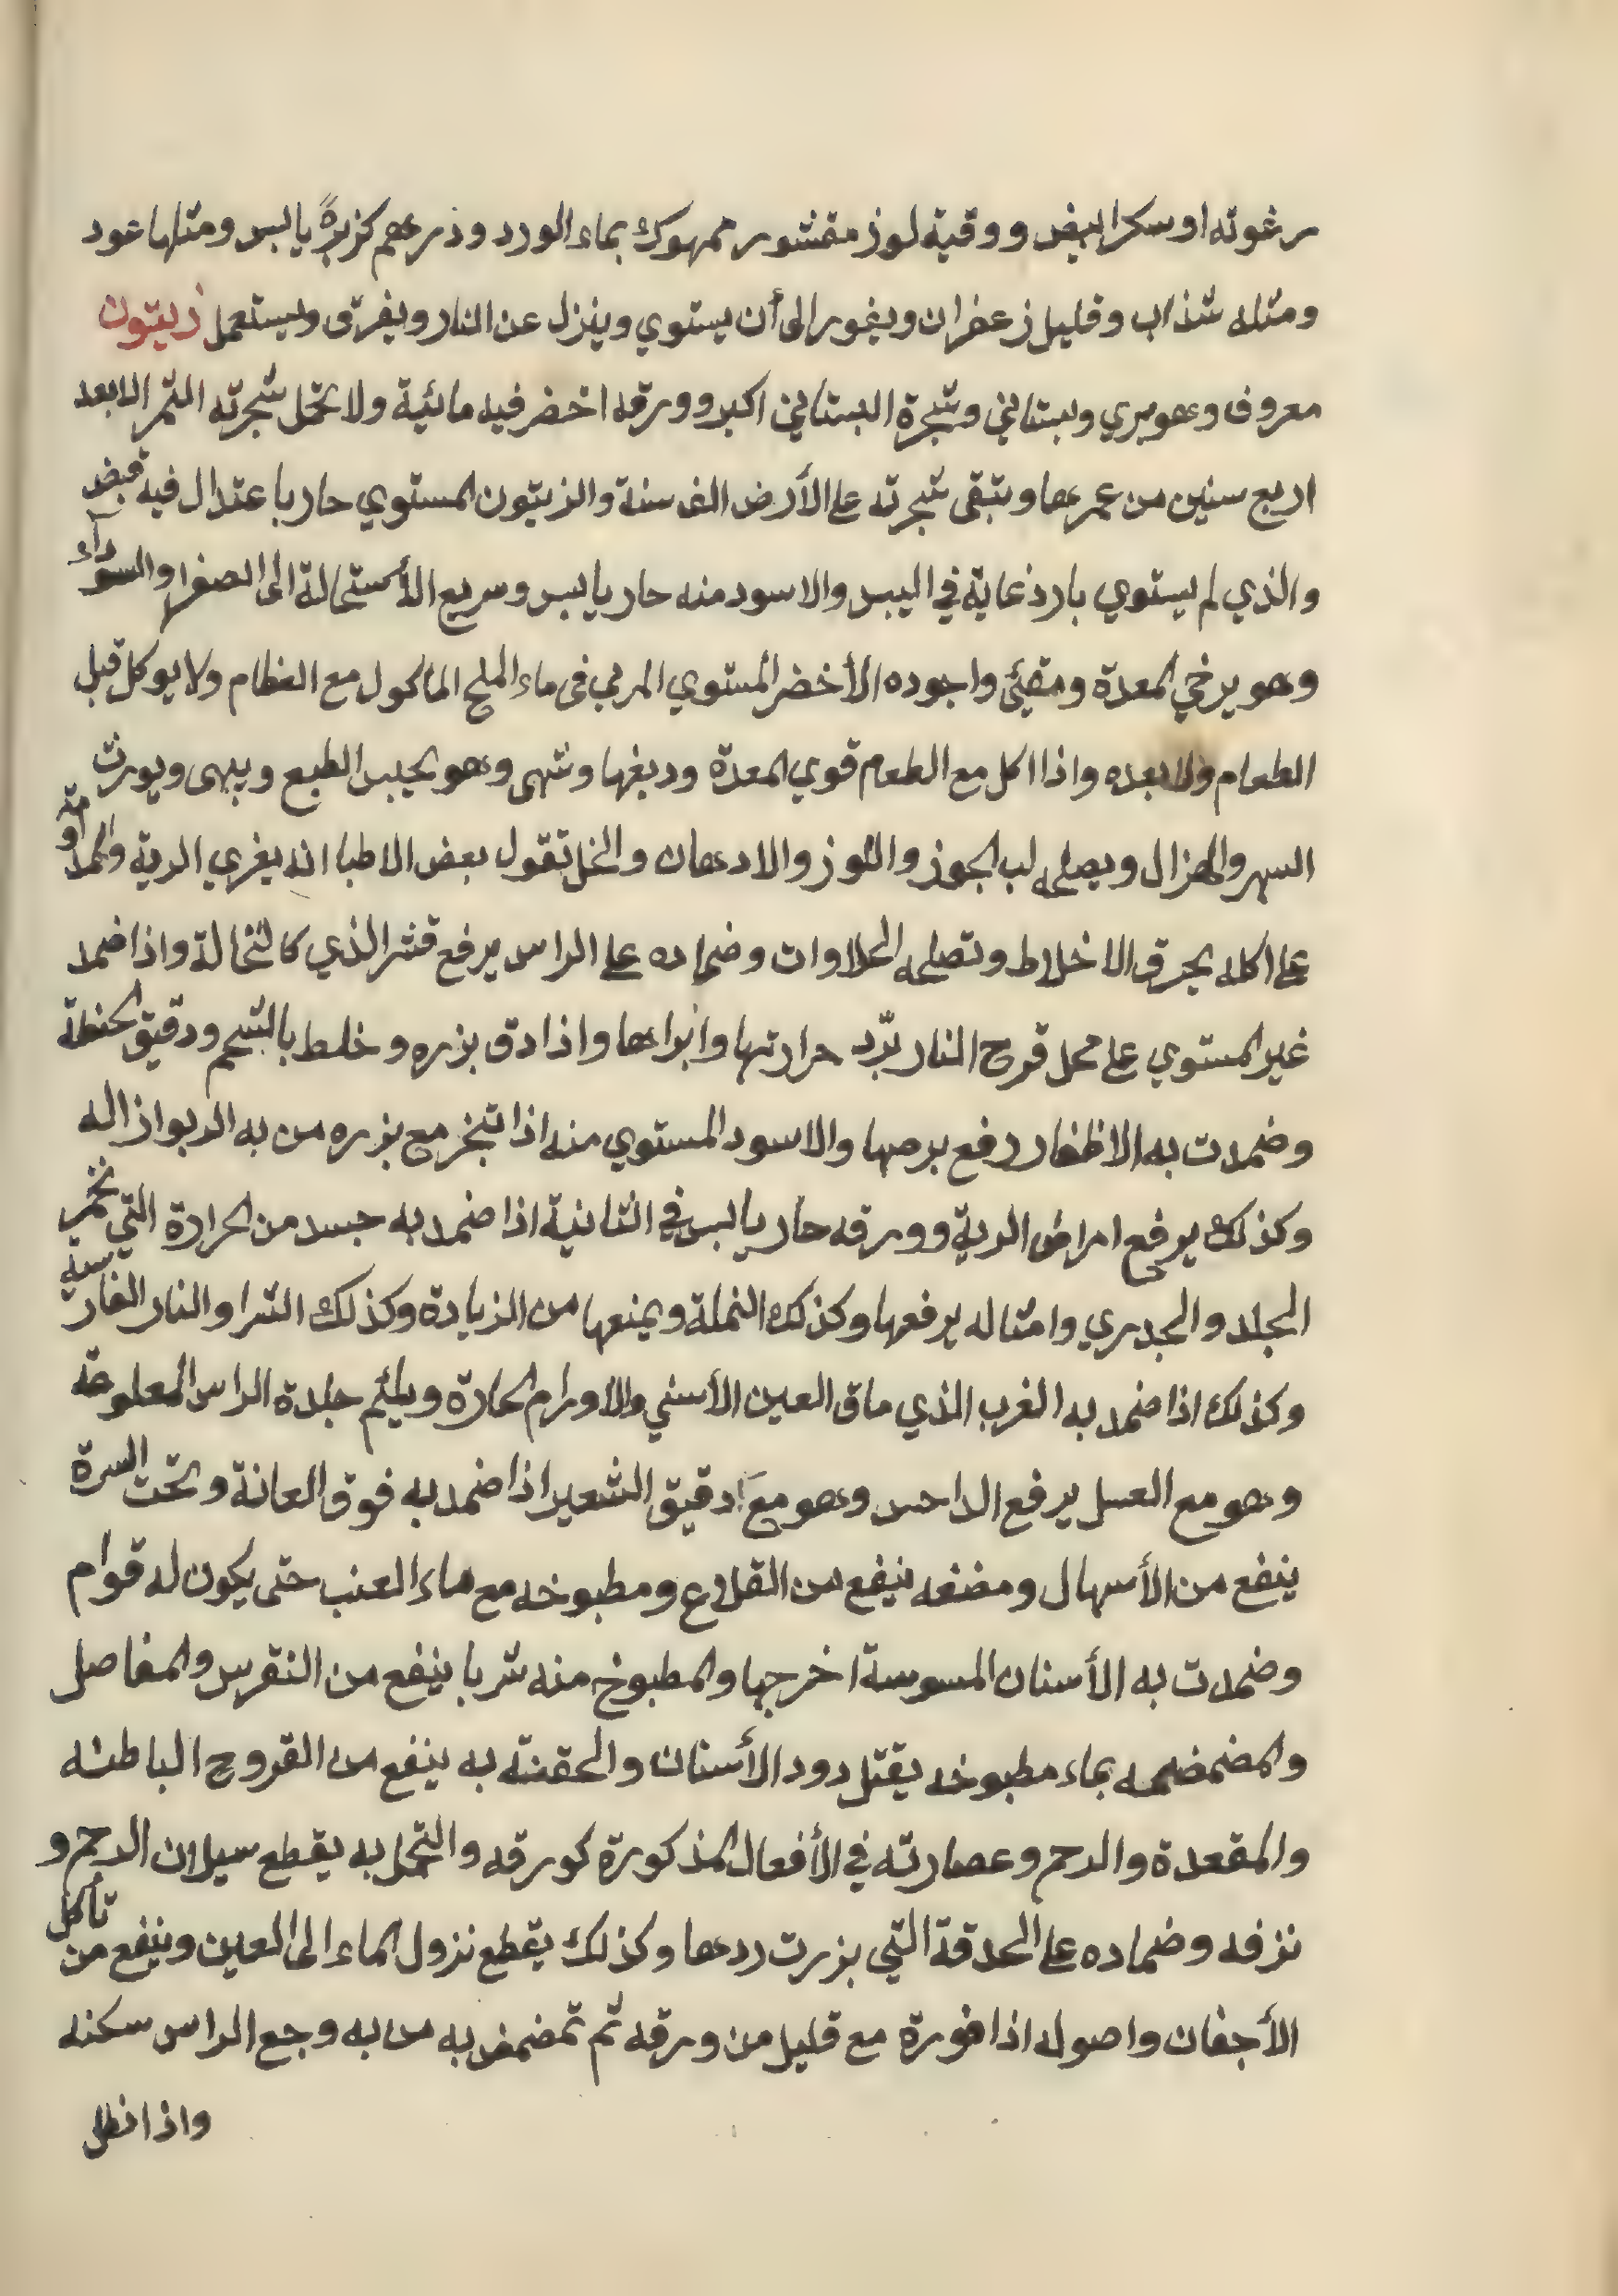 رغوته او سكر ابيض ووقية لوز مقشور ممهوك بماء الورد ودرهم كزبرة يابس ومثلها عود
ومثله شذاب وقليل زعفران ويغور الى أن يستوي وينزل عن النار ويفرق ويستعمل زيتون
معروف وهو بري وبستاني وشجرة البستاني اكبر وورقه اخضر فيه مائية ولا تحمل شجرته الثمر الا بعد
اربع سنين من عمرها وتبقى شجرته على الأرض الف سنة والزيتون المستوي حار باعتدال فيه قبض
والذي لم يستوي بارد غاية في اليبس والاسود منه حار يابس وسريع الأستحالة الى الصفرا والسوداء
وهو يرخي المعدة ومقيئ واجوده الأخضر المستوي المربي فى ماء الملح المأكول مع الطعام ولا يوكل قبل
الطعام ولا بعده واذا اكل مع الطعام قوي المعدة ودبغها وشهى وهو يحبس الطبع ويبهى ويورث
السهر والهزال ويصلحه لب الجوز واللوز والادهان والخل تقول بعض الاطبا انه يغري الرية والمداومة
على اكله يحرق الاخلاط وتصلحه الحلاوات وضماده على الراس يرفع قشر الذي كالنخالة واذا ضمد
غير المستوي على محل قرح النار برّد حرارتها وابراها واذا دق بزره وخلط بالشحم ودقيق الحنطة
وضمدت به الاظفار رفع برصها والاسود المستوي منه اذا تبخر مع بزره من به الربو ازاله
وكذلك يرفع امراض الرية وورقه حار يابس في الثانية اذا ضمد به جسد من الحرارة التي تخمر
الجلد والجدري وامثاله يرفعها وكذلك النملة ويمنعها من الزيادة وكذلك الشرا والنار الفارسية
وكذلك اذا ضمد به الغرب الذي ماق العين الأسني والأورام الحارة ويلئم جلدة الراس المعلوخة
وهو مع العسل يرفع الداحس وهو مع دقيق الشعير اذا ضمد به فوق العانة وتحت السرة
ينفع من الأسهال ومضغه ينفع من القلاع ومطبوخه مع ماء العنب حتى يكون له قوام
وضمدت به الأسنان المسوسة اخرجها والمطبوخ منه شربا ينفع من النقرس والمفاصل
والمضمضمه بماء مطبوخه يقتل دود الأسنان والحقنته به ينفع من القروح الباطنه
والمقعدة والرحم وعصارته في الأفعال المذكورة كورقه والتحمل به يقطع سيلان الرحم و
نزفه وضماده على الحدقة التي بزرت ردها وكذلك يقطع نزول الماء الى العين وينفع من تأكل
الأجفان واصوله اذا فورة مع قليل من ورقه ثم تمضمض به من به وجع الراس سكنه
واذا نطل